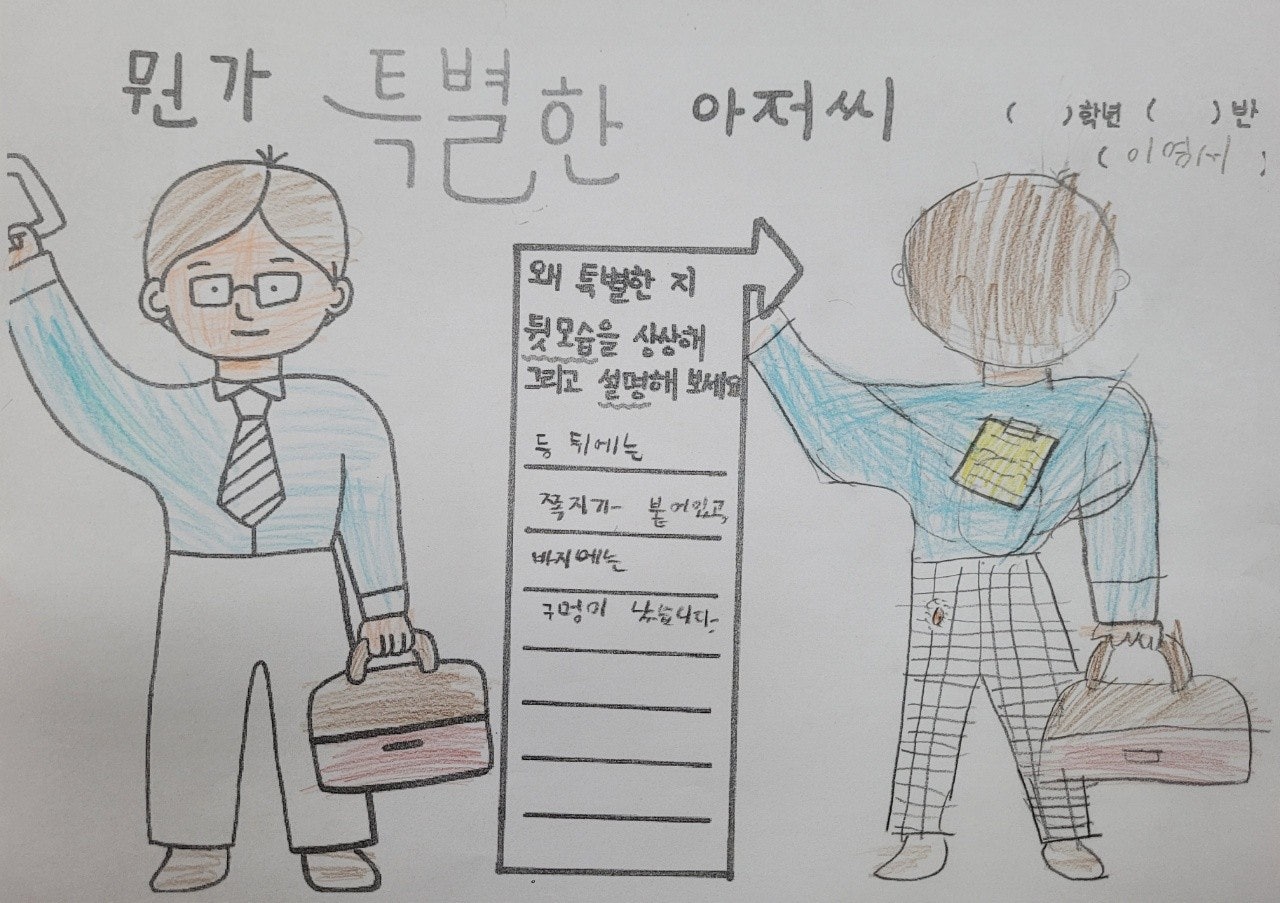 뭔가 특별한 아저씨
( )학년 ( )반
( 이영서 )
왜 특별한 지
뒷모습을 상상해
그리고 설명해 보세요
등 뒤에는
쪽지가 붙어있고,
바지에는
구멍이 났습니다.